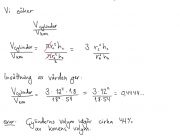 Vi söker
V cylinder / V kon
V cylinder / V kon = π r₁² h₁ / (π r₂² h₂ / 3) = 3 r₁² h₁ / r₂² h₂
Insättning av värden ger:
V cylinder / V kon = 3 · 12² · 18 / 18² · 54 = 3 · 12² · 18 / 18² · 54 = 0,4444...
Svar: Cylinderns volym utgör cirka 44%
av konens volym.